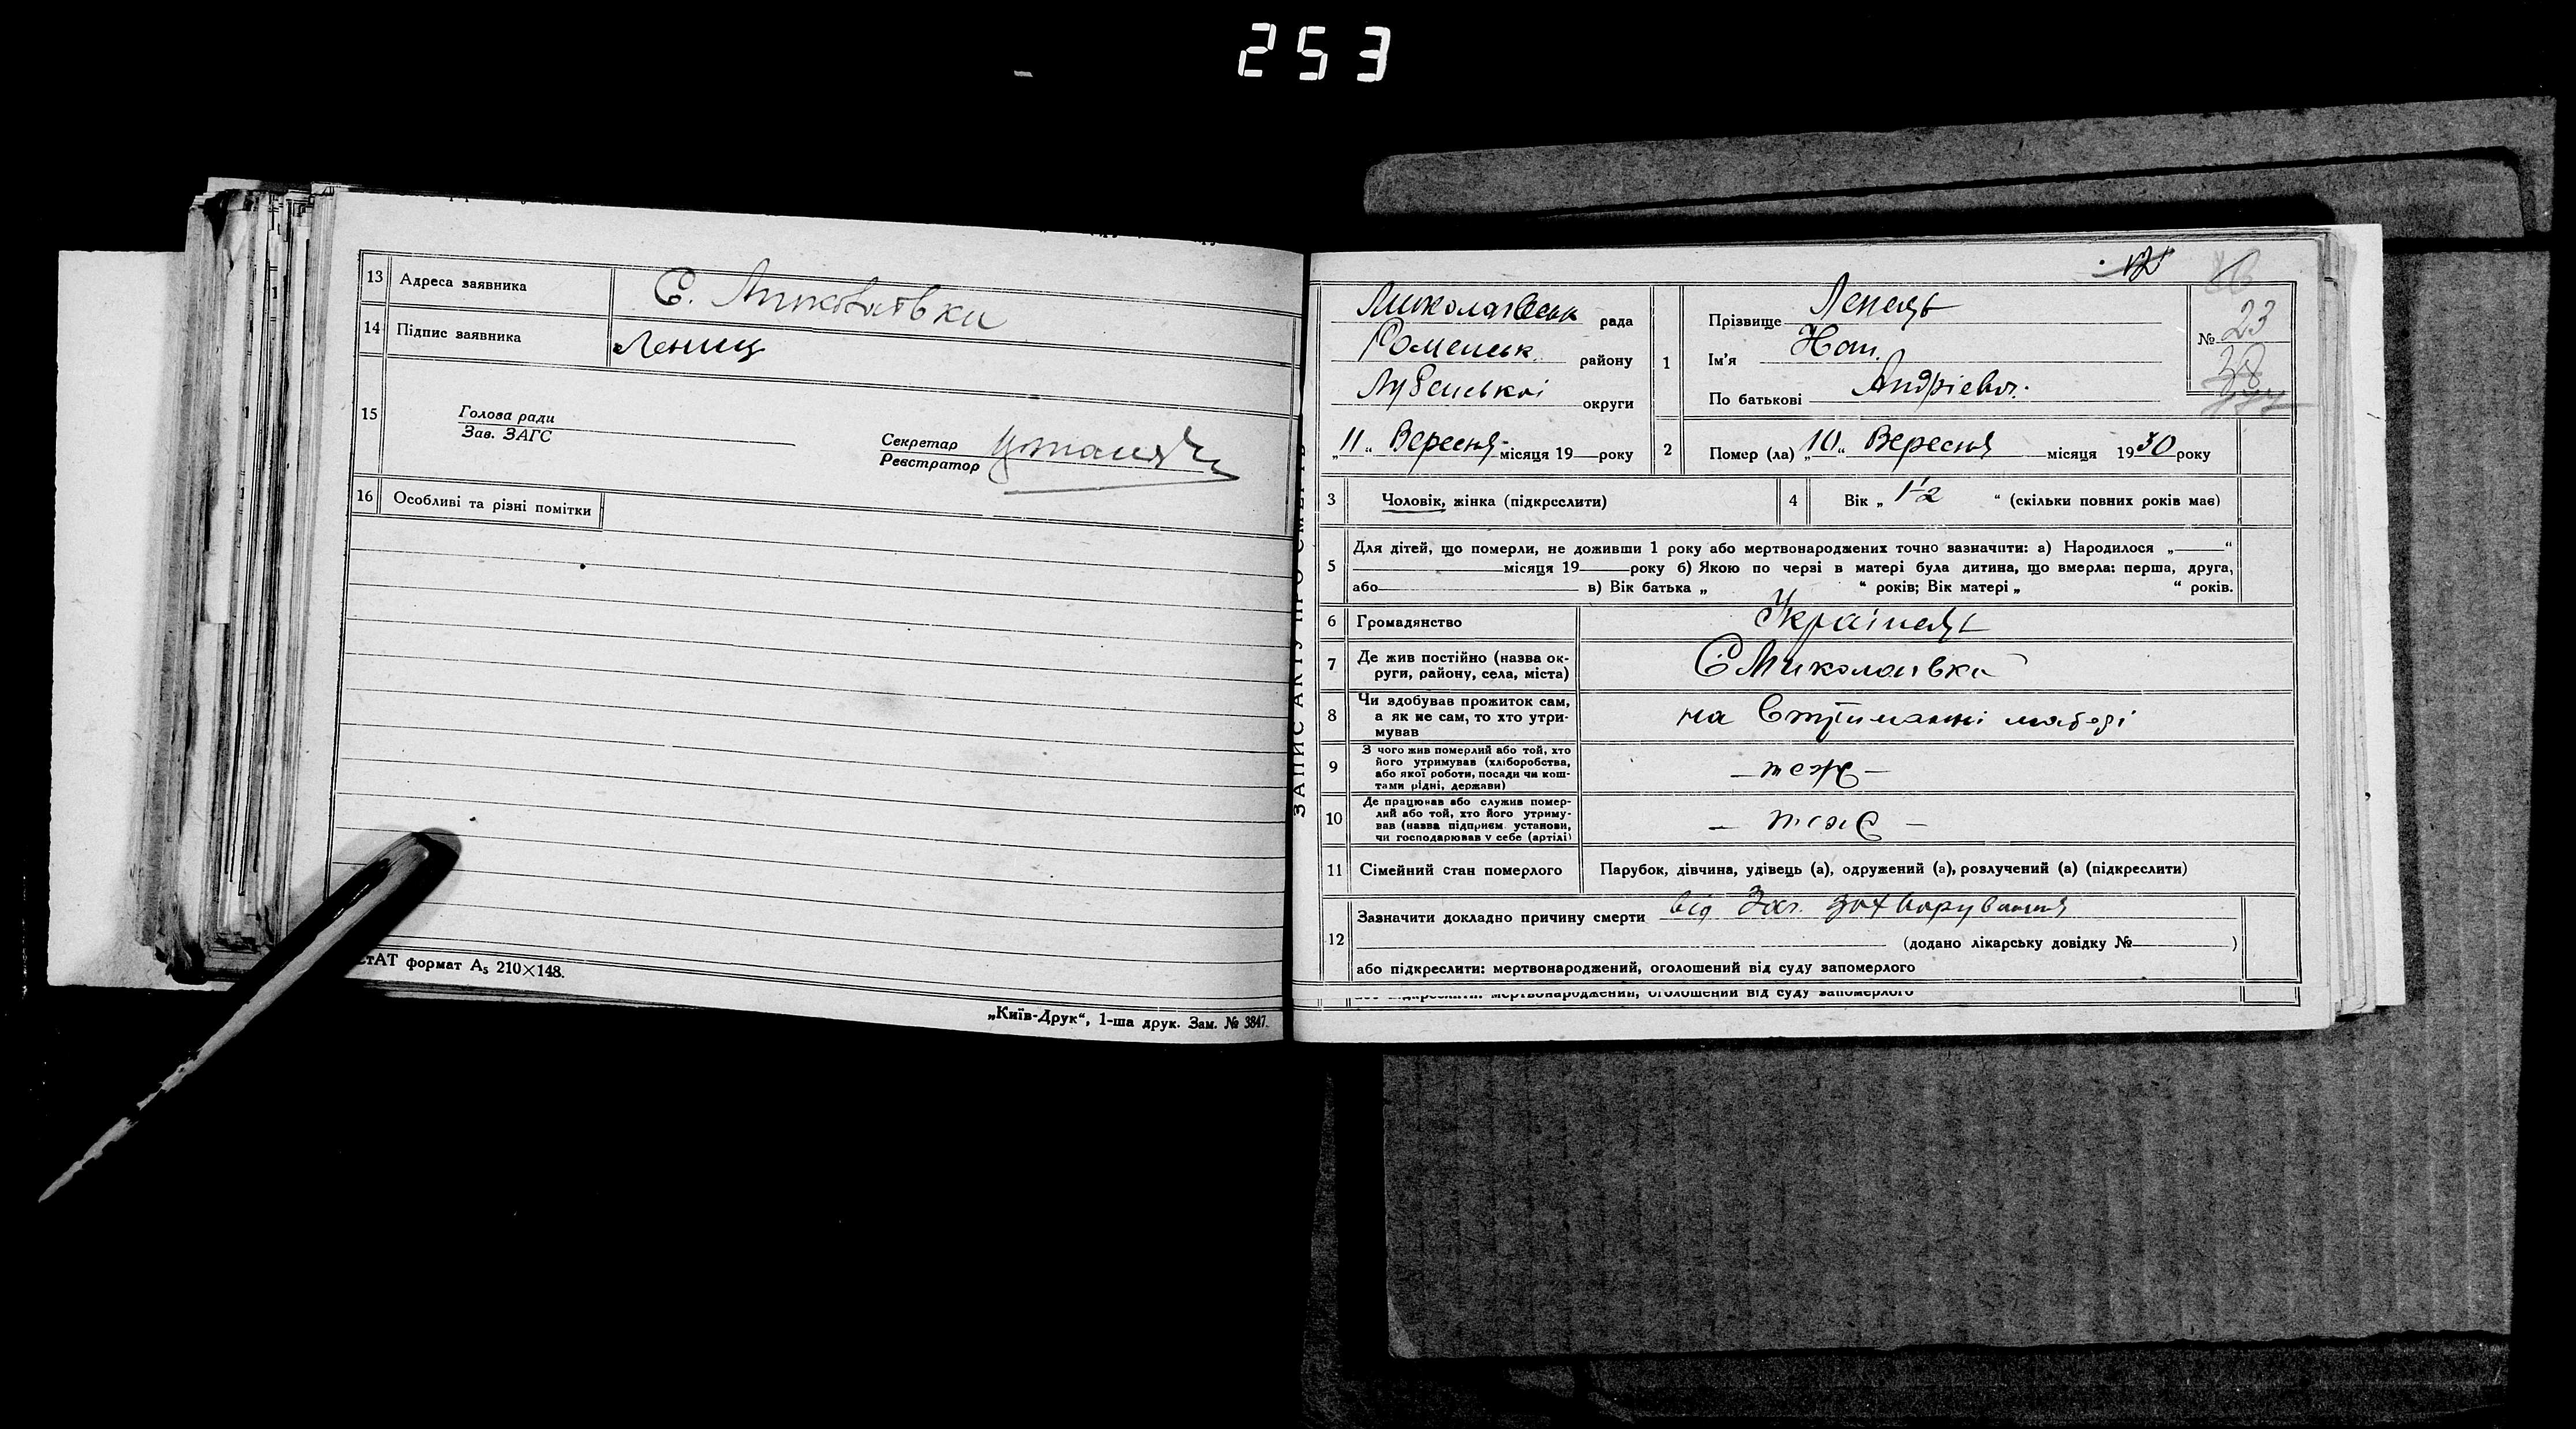 253
13 Адреса заявника С. Миколаївка
14 Підпис заявника Лениц
15
Голова ради
Зав. ЗАГС
Секретар
Реєстратор
16 Особливі та різні помітки
формат А5 210×148.
„Київ-Друк“, 1-ша друк. Зам. № 3847.
ЗАПИС АКТУ ПРО СМЕРТЬ
Миколаївськ рада
Роменськ. району
Лубенської округи
„11“ Вересня місяця 19 року
№ 23
38
1 Прізвище Ленець
Ім'я
По батькові Андрієвич.
2 Помер (ла) „10“ Вересня місяця 1930 року
3 Чоловік, жінка (підкреслити)
4 Вік „ “ (скільки повних років має)
5 Для дітей, що померли, не доживши 1 року або мертвонароджених точно зазначити: а) Народилося „ “
місяця 19 року б) Якою по черзі в матері була дитина, що вмерла: перша, друга,
або в) Вік батька „ “ років; Вік матері „ “ років.
6 Громадянство Українець
7 Де жив постійно (назва ок-
руги, району, села, міста) С Миколаївка
8 Чи здобував прожиток сам,
а як не сам, то хто утри-
мував на втриманні
9 З чого жив померлий або той, хто
його утримував (хліборобства,
або якої роботи, посади чи кош-
тами рідні, держави) – теж –
10 Де працював або служив помер-
лий або той, хто його утриму-
вав (назва підприєм. установи,
чи господарював у себе (артілі) – теж –
11 Сімейний стан померлого Парубок, дівчина, удівець (а), одружений (а), розлучений (а) (підкреслити)
12 Зазначити докладно причину смерти від захворування
(додано лікарську довідку № )
або підкреслити: мертвонароджений, оголошений від суду запомерлого
або підкреслити: мертвонароджений, оголошений від суду запомерлого